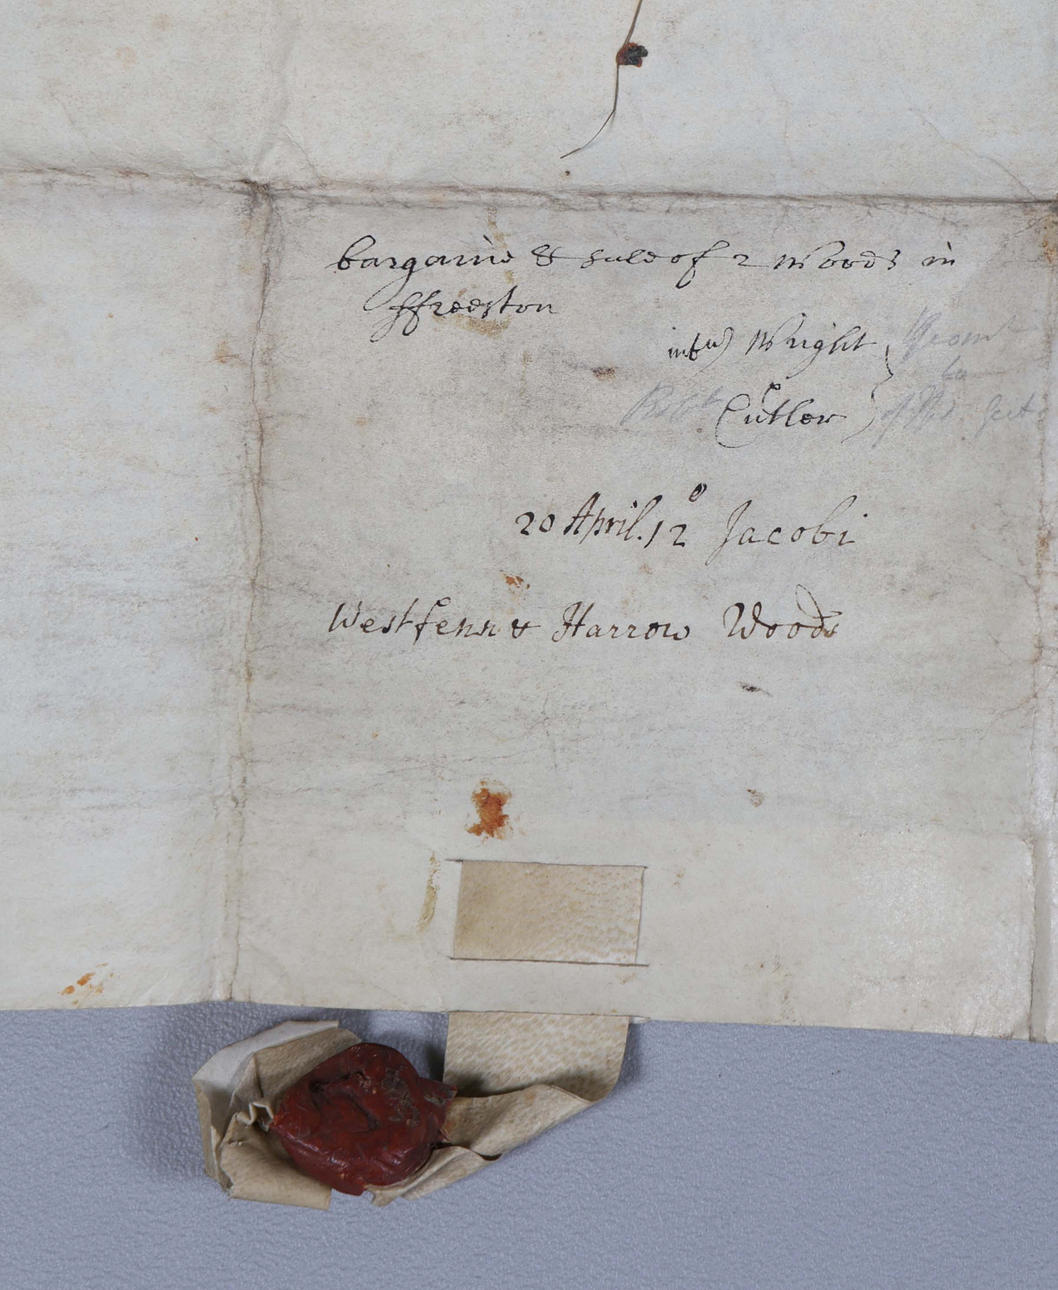 bargaine & sale of 2 Woods in
ffreeston
int Wright
Cutler
20 April. 12° Jacobi
Westfenn & Harrow Woods